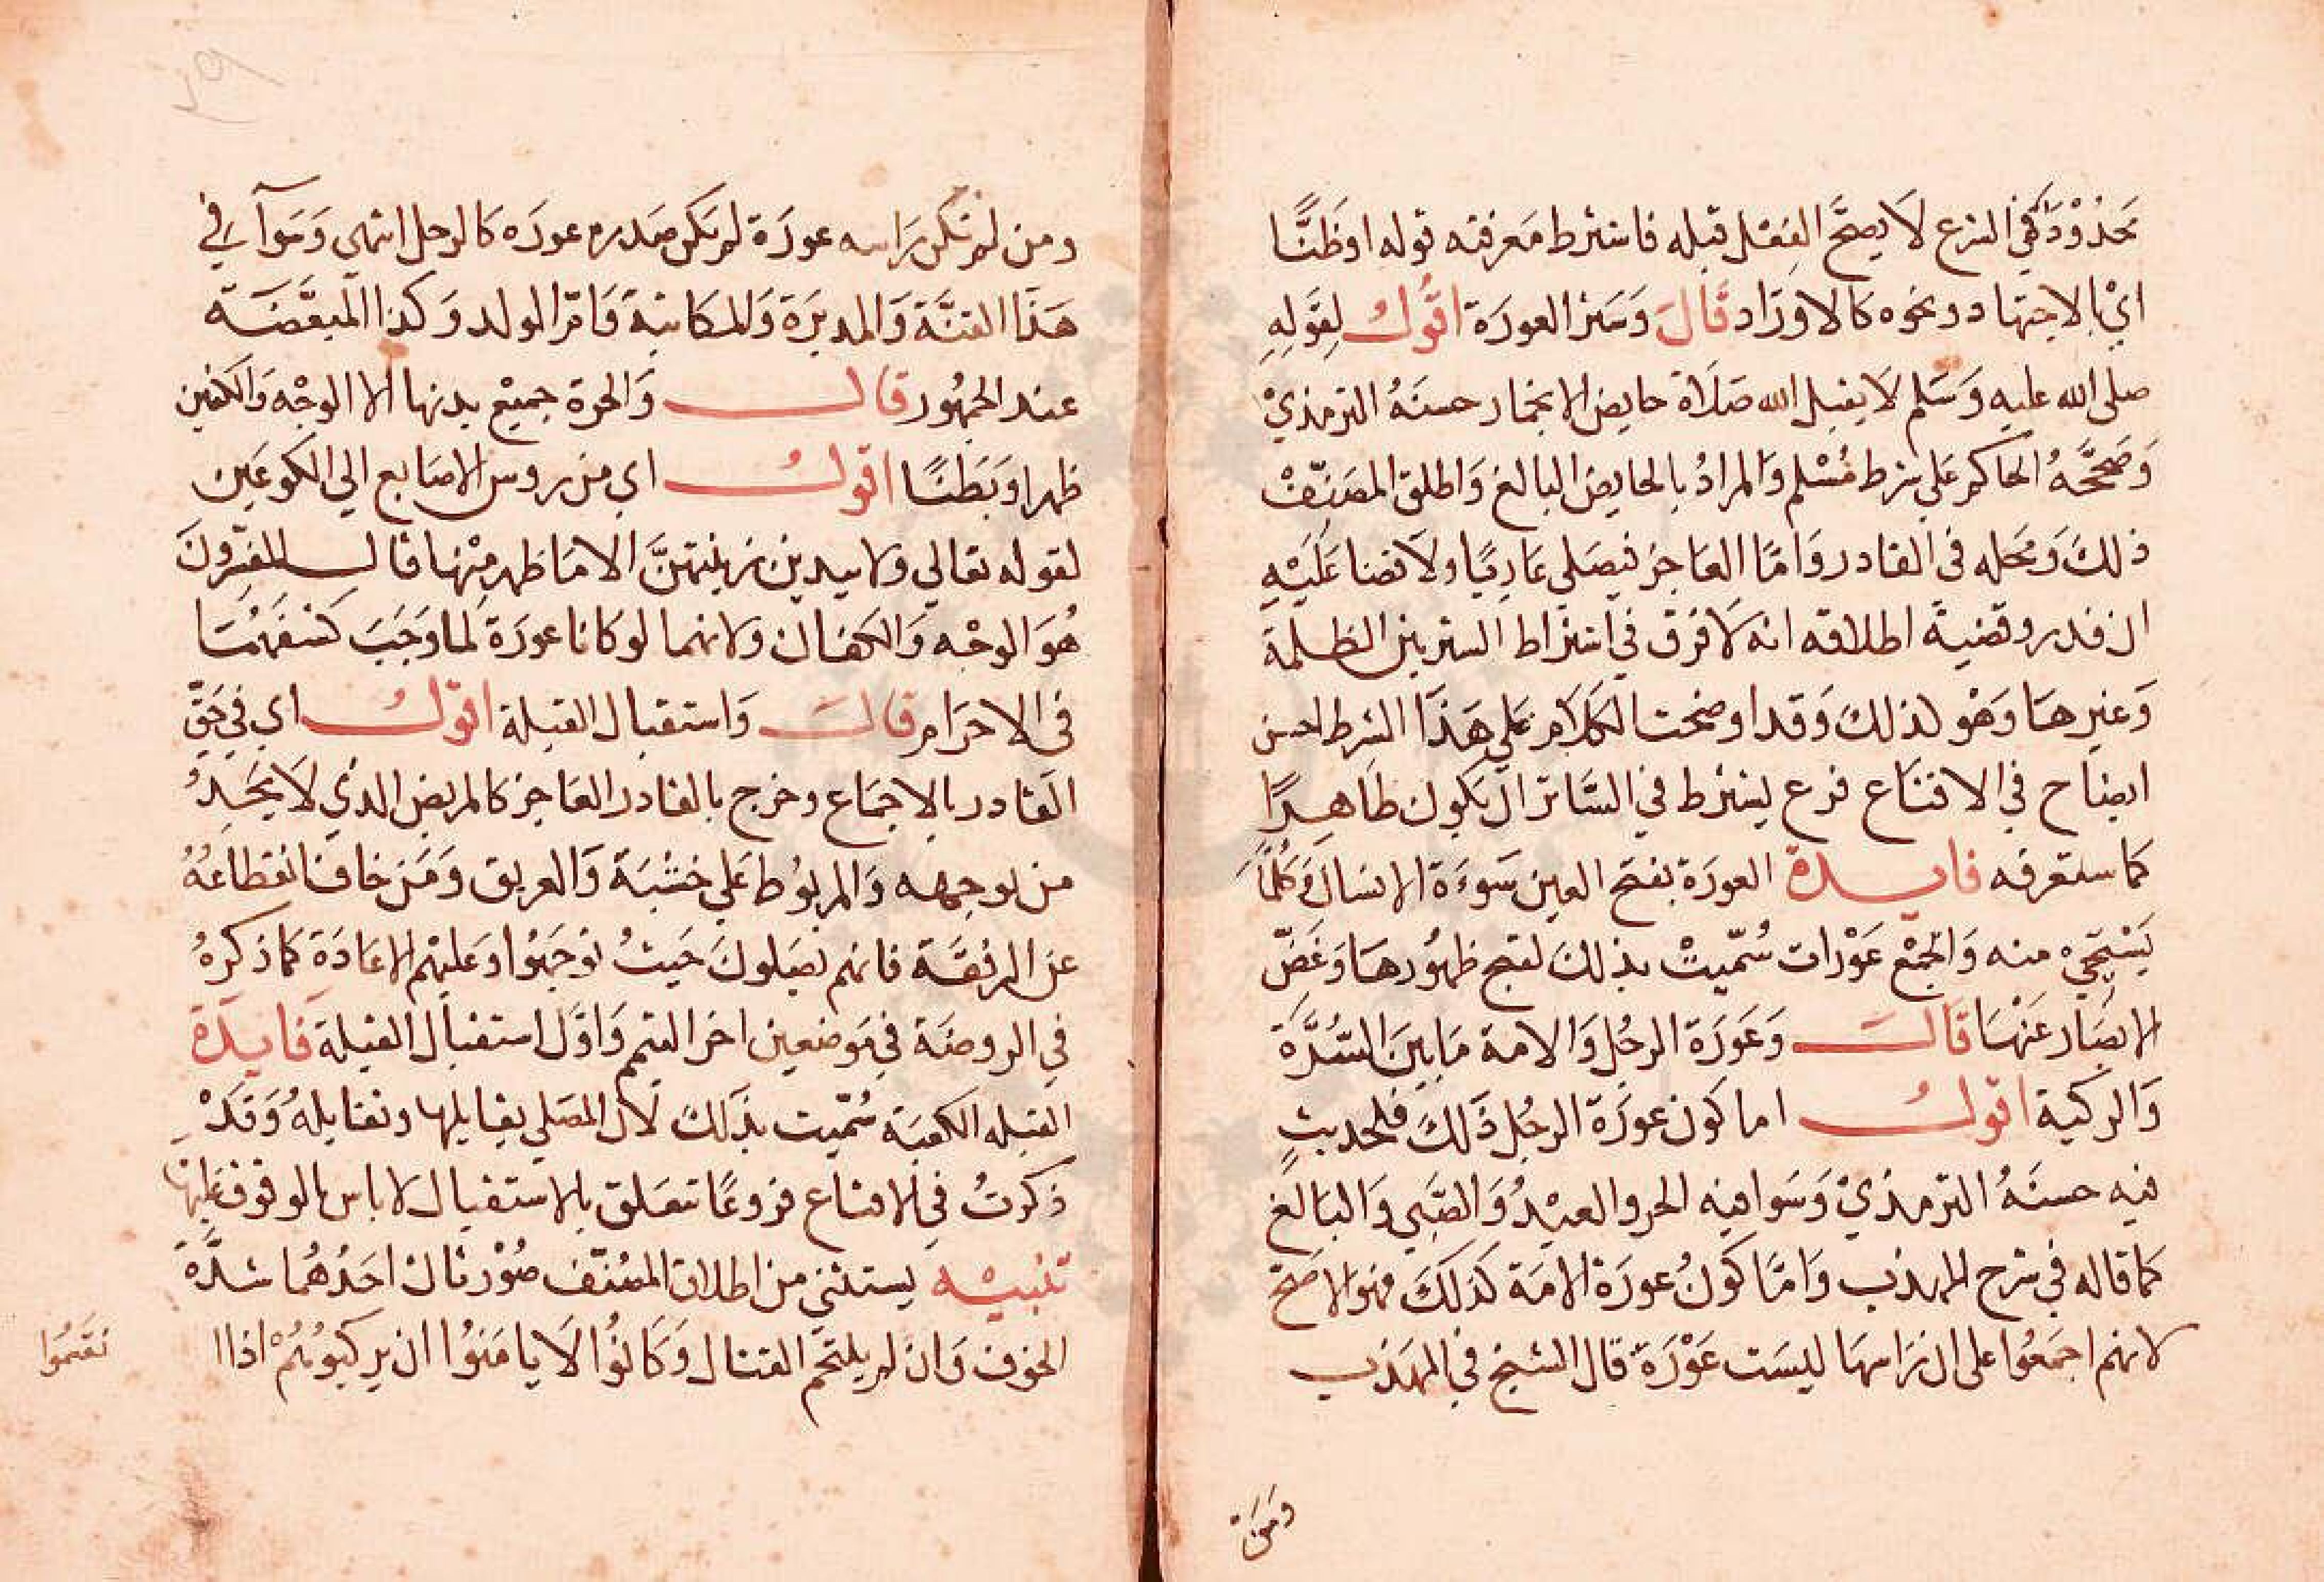 محدودا في الشرع لا يصح الفعل قبله فاشترط معرفته قوله او ظنًّا
اي بالاجتهاد ونحوه كالاوراد قال وستر العورة اقول لقوله
صلى الله عليه وسلم لا يقبل الله صلاة حايض الا بخمار حسنه الترمذي
وصححه الحاكم على شرط مسلم والمراد بالحايض البالغ واطلق المصنف
ذلك ومحله في القادر واما العاجز فيصلى عاريًا ولا قضا عليه
ان قدر وقضية اطلاقه انه لا فرق في اشتراط الستر بين الظلمة
وغيرها وهو لذلك وقد اوضحت الكلام على هذا الشرط احسن
ايضاح في الاقناع فرع يشترط في الساتر ان يكون طاهرًا
كما ستعرفه فايدة العورة بفتح العين سوءة الانسان وكلما
يستحيي منه والجمع عورات سُمّيت بذلك لقبح ظهورها وغضّ
الابصار عنها قال وعورة الرجل والامة ما بين السرة
والركبة اقول اما كون عورة الرجل ذلك فلحديث
فيه حسنه الترمذي وسوا فيه الحر والعبد والصبي والبالغ
كما قاله في شرح المهذب واما كون عورة الامة كذلك فهو الاصح
لانهم اجمعوا على ان راسها ليست عورة قال الشيخ في المهذب
ومن
ومن لم تكن راسه عورة لم تكن صدره عورة كالرجل انتهى وسوآء في
هذا القنة والمدبرة والمكاتبة وام الولد وكذا المبعضة
عند الجمهور قال والحرة جميع بدنها الا الوجه والكفين
ظهرا وبطنًا اقول اي من روس الاصابع الي الكوعين
لقوله تعالي ولا يبدين زينتهن الا ما ظهر منها قال المفسرون
هو الوجه والكفان ولانهما لو كانا عورة لما وجب كشفهما
في الاحرام قال واستقبال القبلة اقول اي في حق
القادر بالاجماع وخرج بالقادر العاجز كالمريض الذي لا يجد
من يوجهه والمربوط على خشبة والغريق ومن خاف انقطاعه
عن الرفقة فانهم يصلون حيث توجهوا وعليهم الاعادة كما ذكره
في الروضة في موضعين اخر التيمم واول استقبال القبلة فايدة
القبله الكعبة سُمّيت بذلك لان المصلي يقابلها وتقابله وقد
ذكرت في الاقناع فروعًا تتعلق بالاستقبال لا باس بالوقوف عليها
تنبيه يستثني من اطلاق المصنف صورتان احدهما شدة
الخوف وان لم يلتحم القتال وكانوا لا يامنوا ان يركبوهم اذا ا
نقسموا